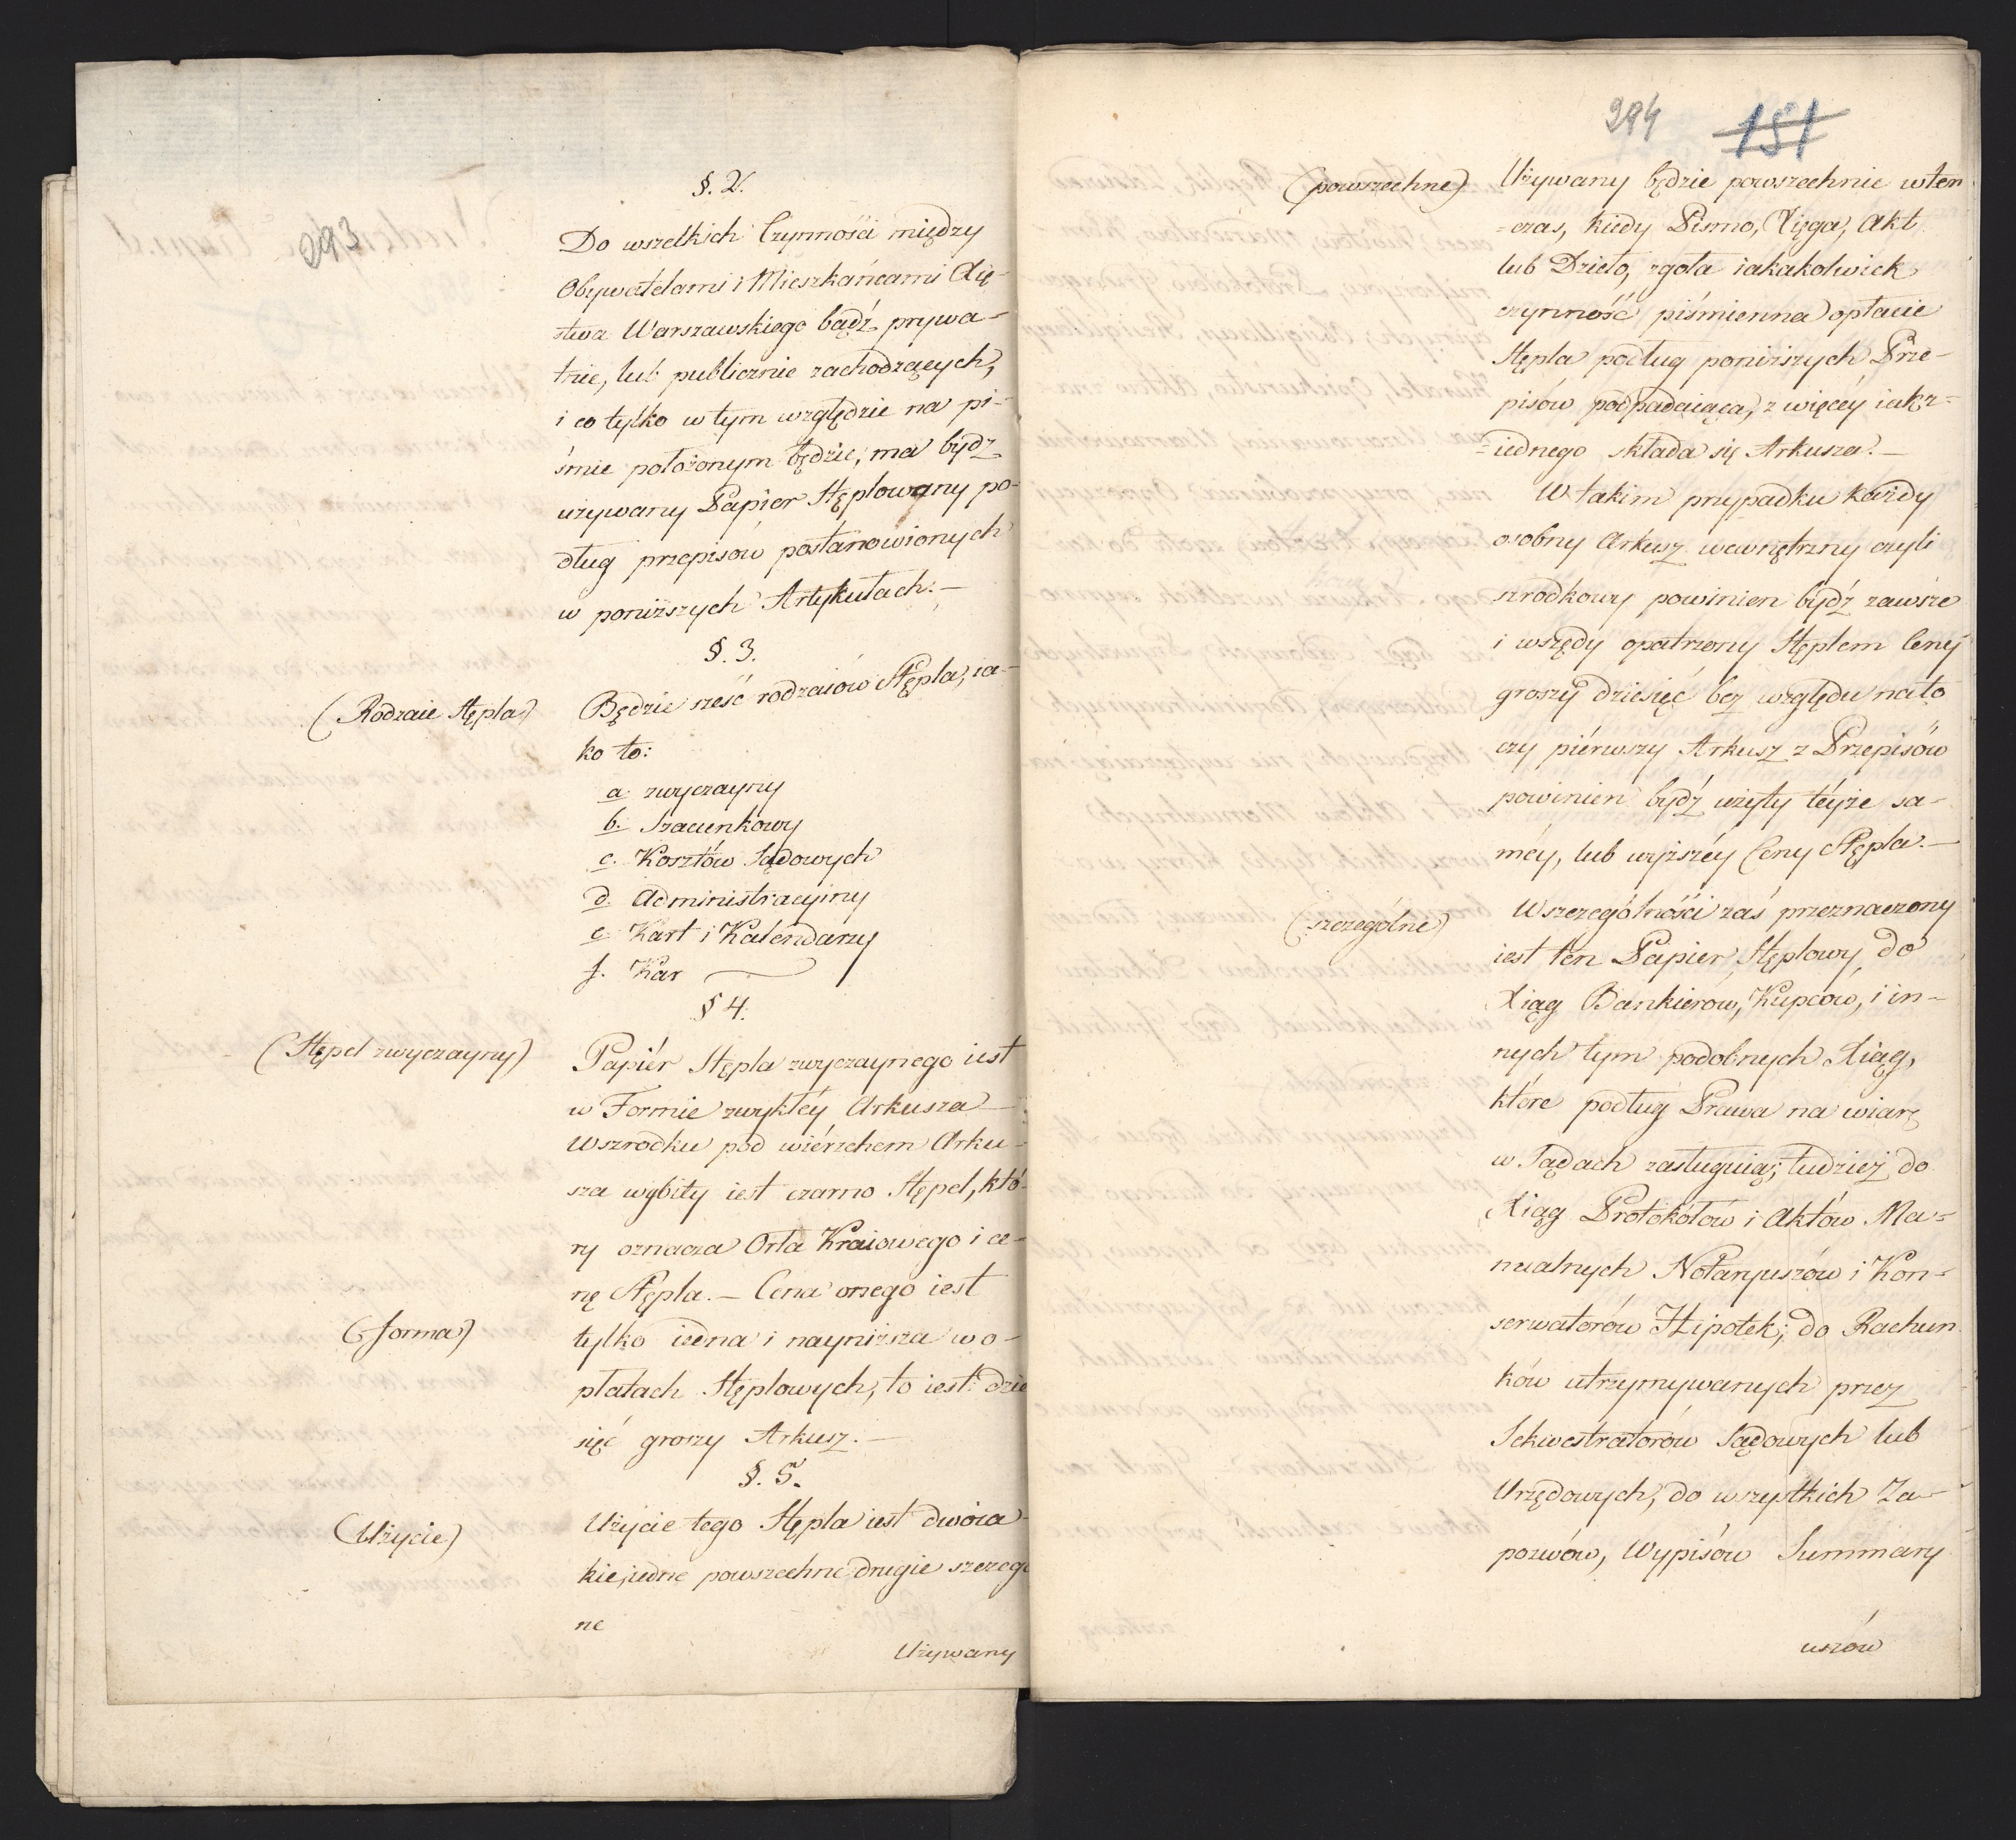 293
§. 2.
Do wszelkich Czynności między
Obywatelami i Mieszkańcami Xię-
stwa Warszawskiego bądź prywa-
tnie, lub publicznie zachodzących,
i co tylko w tym względzie na pi-
śmie położonym będzie, ma bydź
używany Papier Stęplowany po-
dług przepisów postanowionych
w poniższych Artykułach. —
§. 3.
(Rodzaie Stępla)
Będzie sześć rodzaiów Stępla, ia-
ko to:
a. zwyczayny
b. Szacunkowy
c. Kosztów Sądowych
d. Administracyiny
e. Kart i Kalendarzy
f. Kar
§ 4.
(Stępel zwyczayny)
Papiér Stępla zwyczaynego iest
w Formie zwykłéy Arkusza —
Wszrodku pod wiérzchem Arku-
sza wybity iest czarno Stępel, któ-
ry oznacza Orła Kraiowego i ce-
nę Stępla. — Cena onego iest
(forma)
tylko iedna i nayniższa w o-
płatach Stęplowych, to iest: dzie
sięć groszy Arkusz. —
§. 5.
(Użycie)
Użycie tego Stępla iest dwoia-
kie, iedne powszechne drugie szczegó
ne
Używany
294 151
(powszechne)
Używany będzie powszechnie w ten
-czas, kiedy Pismo, Xięga, Akt
lub Dzieło, zgoła iakakolwiek
czynność piśmienna opłacie
Stępla podług poniższych Prze-
pisów podpadaiąca, z więcéy iak z-
-iednego składa się Arkusza. —
W takim przypadku każdy
osobny Arkusz wewnętrzny czyli
szrodkowy, powinien bydź zawsze
i wszędy opatrzony Stęplem Ceny
groszy dziesięć bez względu na to
czy piérwszy Arkusz z Przepisów
powinien bydź użyty téyże sa-
méy, lub wyższéy Ceny Stępla. —
(szczególne)
W szczególności zaś przeznaczony
iest ten Papier Stęplowy, do
Xiąg Bankierów, Kupców, i in-
nych tym podobnych Xiąg,
które podług Prawa na wiarę
w Sądach zasługuią; tudzież do
Xiąg Protokółów i Aktów Ma-
nualnych Notaryuszów i Kon-
serwatorów Hipotek; do Rachun
ków utrzymywanych przez
Sekwestratorów Sądowych lub
Urzędowych, do wszystkich Za-
pozwów, Wypisów Summary
uszów